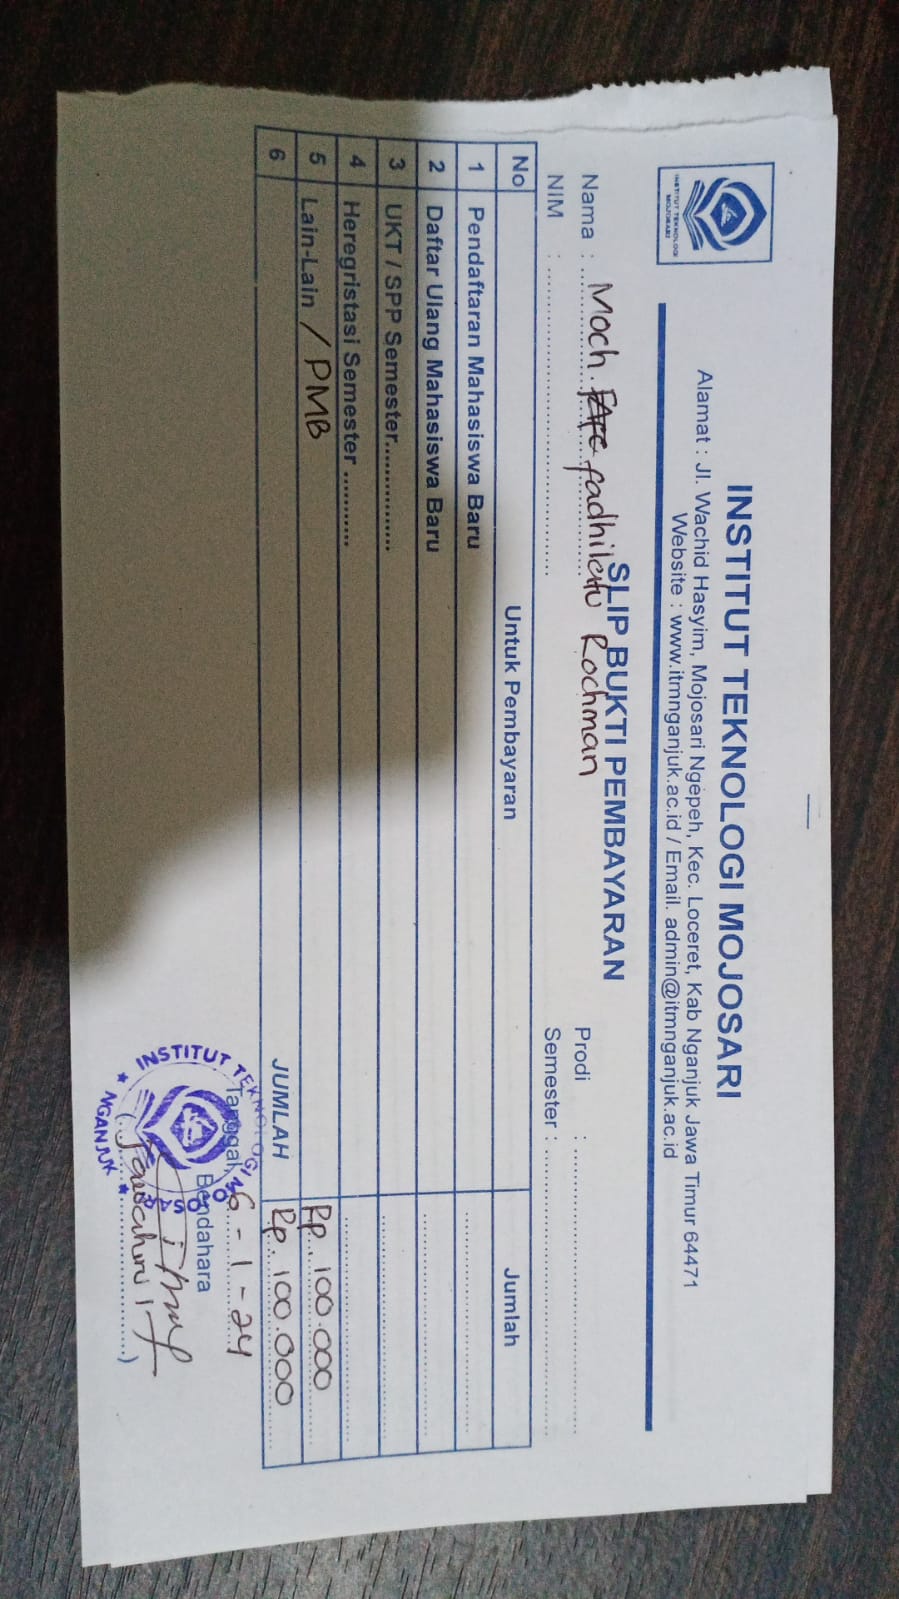 INSTITUT TEKNOLOGI MOJOSARI
INSTITUT TEKNOLOGI MOJOSARI
Alamat : Jl. Wachid Hasyim, Mojosari Ngepeh, Kec. Loceret, Kab Nganjuk Jawa Timur 64471
Website : www.itmnganjuk.ac.id / Email. admin@itmnganjuk.ac.id
SLIP BUKTI PEMBAYARAN
Nama : Moch. Rochman Prodi :
NIM : Semester :
No Untuk Pembayaran Jumlah
1 Pendaftaran Mahasiswa Baru
2 Daftar Ulang Mahasiswa Baru
3 UKT / SPP Semester...............
4 Heregristasi Semester ............
5 Lain-Lain / PMB Rp. 100.000
6 JUMLAH Rp. 100.000
Tanggal, 6 - 1 - 24
Bendahara
INSTITUT TEKNOLOGI MOJOSARI
NGANJUK